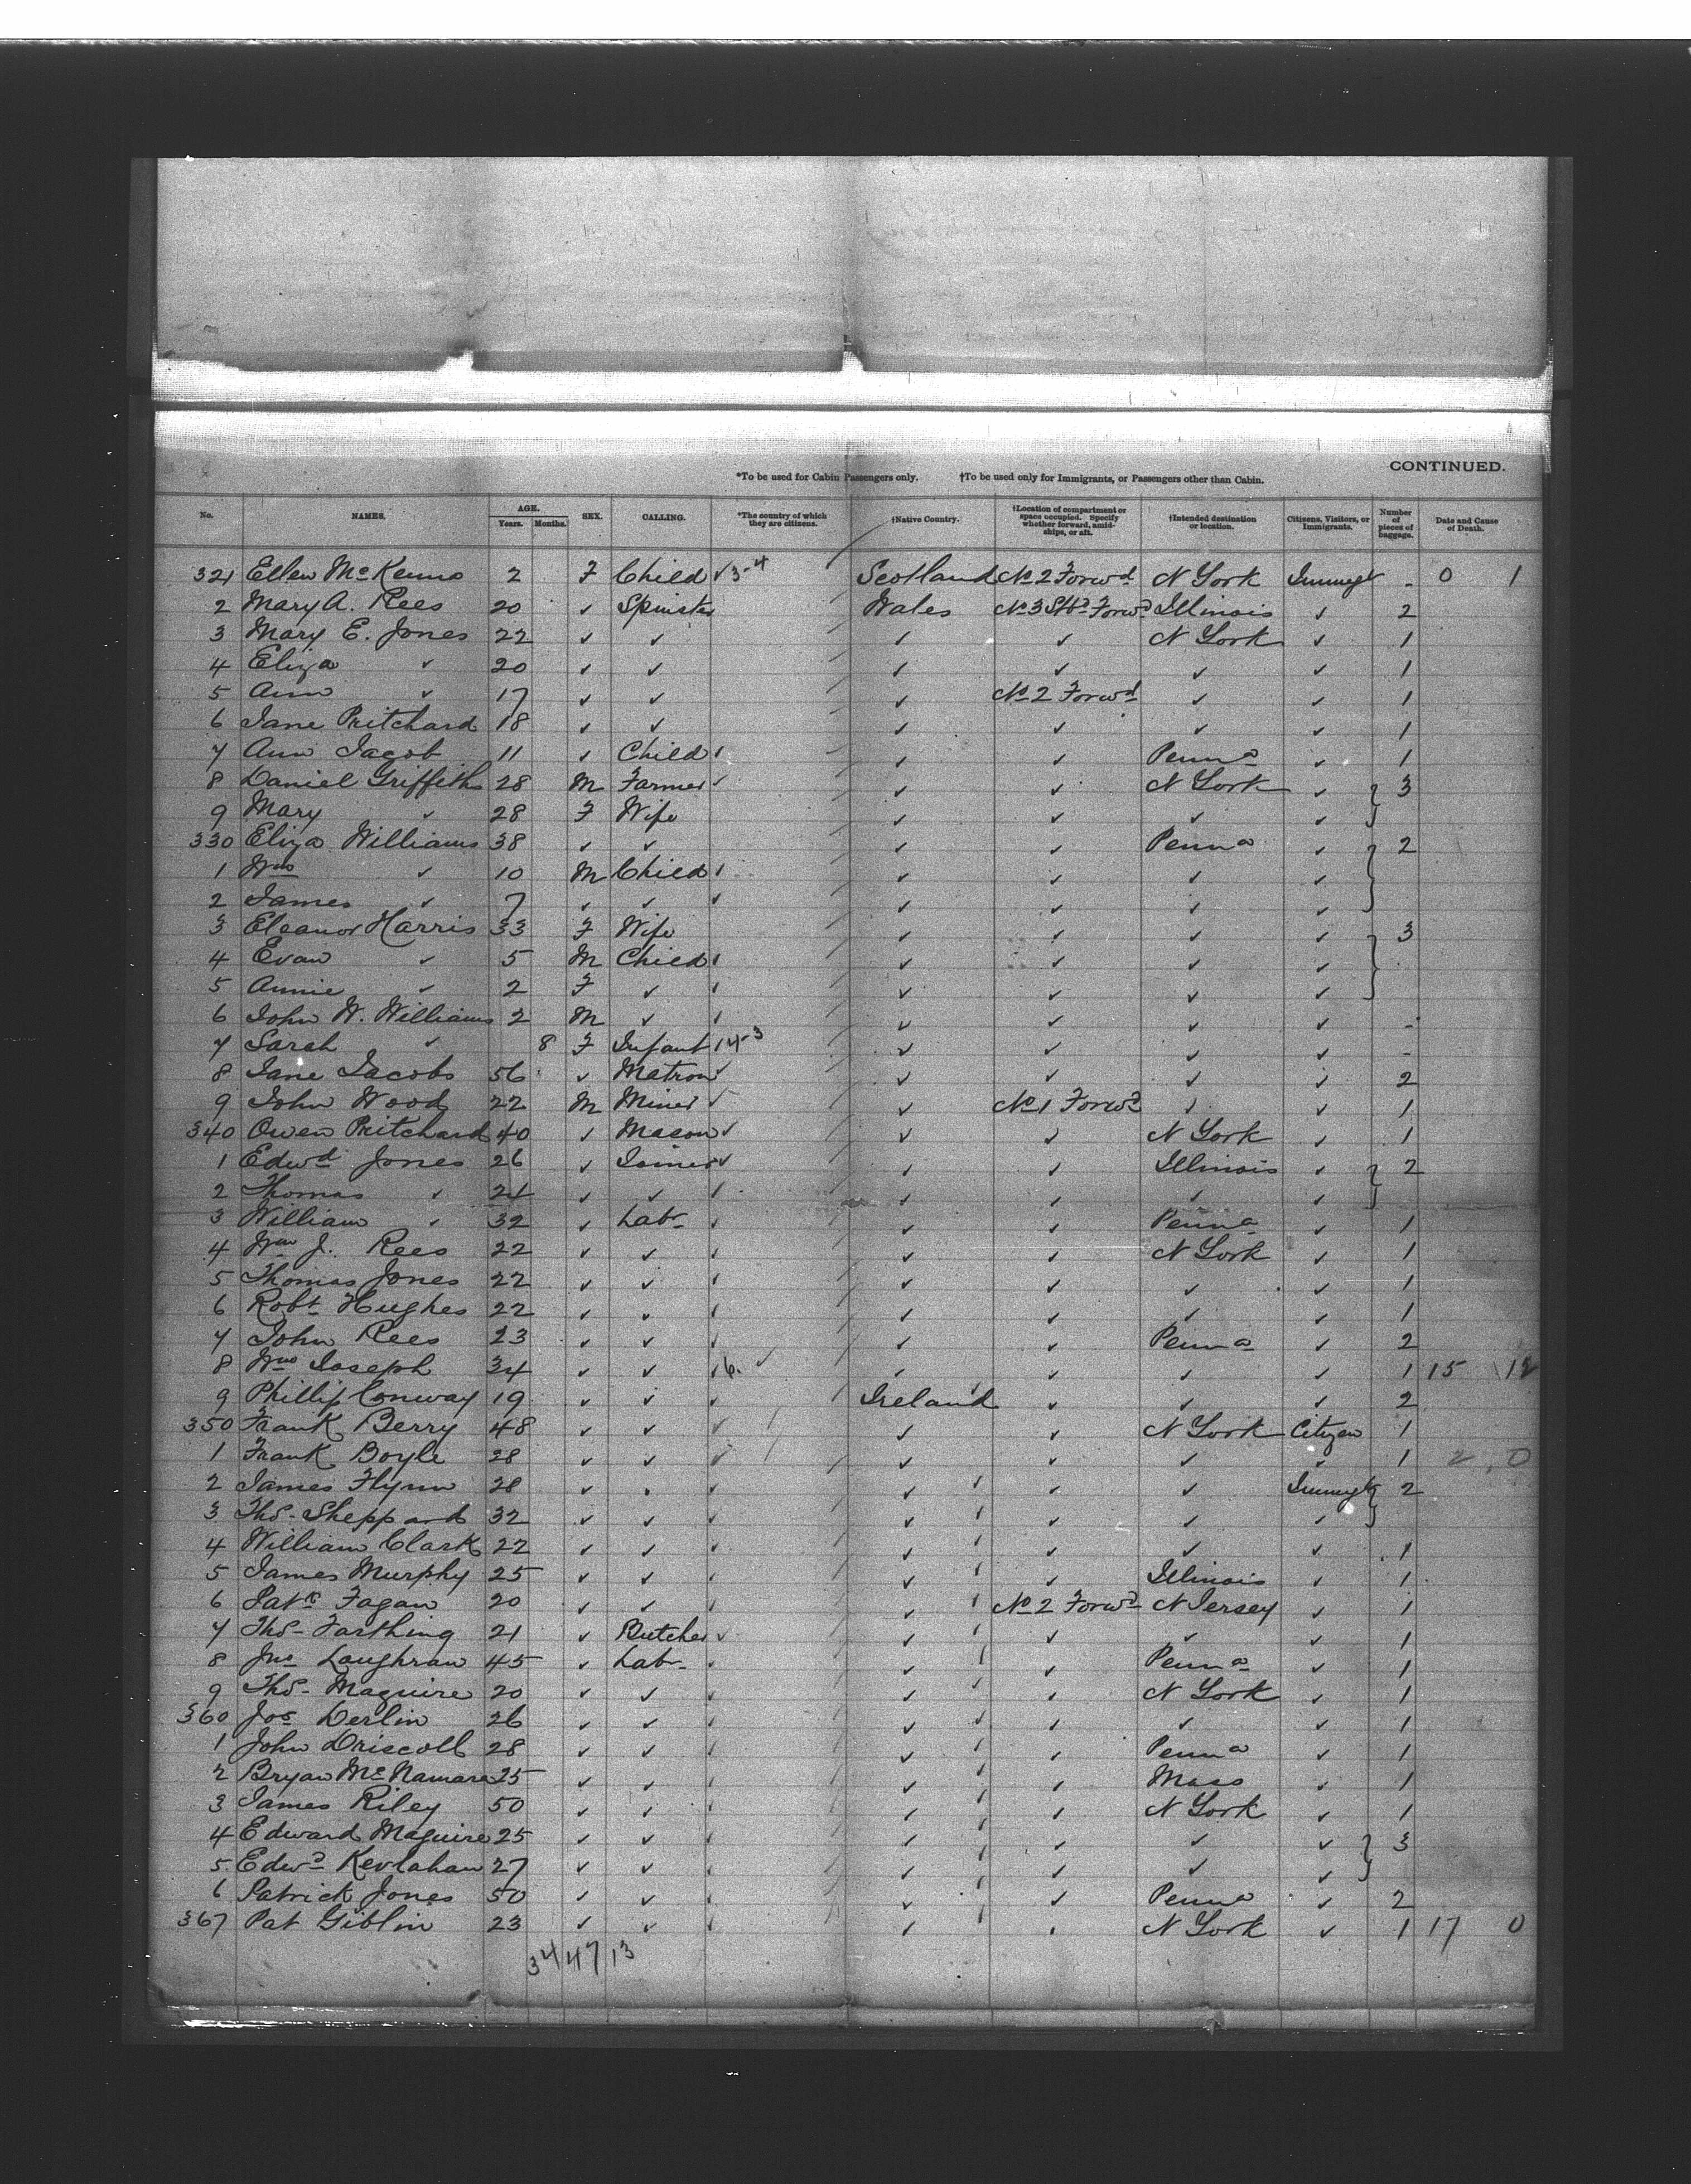 CONTINUED.
*To be used for Cabin Passengers only. †To be used only for Immigrants, or Passengers other than Cabin.
No. NAMES. AGE. Years. Months. SEX. CALLING. *The country of which they are citizens. †Native Country. †Location of compartment or space occupied. Specify whether forward, amidships, or aft. †Intended destination or location. Citizens, Visitors, or Immigrants. Number of pieces of baggage. Date and Cause of Death.
321 Ellen McKenna 2 F Child ✓ 3-4 Scotland No 2 Forwd N York Immigt - 0 1
2 Mary A. Rees 20 ✓ Spinster Wales No 3 Stb Forwd Illinois ✓ 2
3 Mary E. Jones 22 ✓ ✓ ✓ ✓ N York ✓ 1
4 Eliza ✓ 20 ✓ ✓ ✓ ✓ ✓ ✓ 1
5 Ann ✓ 17 ✓ ✓ ✓ No 2 Forwd ✓ ✓ 1
6 Jane Pritchard 18 ✓ ✓ ✓ ✓ ✓ ✓ 1
7 Ann Jacob 11 ✓ Child ✓ ✓ Penna ✓ 1
8 Daniel Griffiths 28 M Farmer ✓ ✓ ✓ N York ✓ } 3
9 Mary ✓ 28 F Wife ✓ ✓ ✓ ✓
330 Eliza Williams 38 ✓ ✓ ✓ ✓ Penna ✓ } 2
1 Wm ✓ 10 M Child ✓ ✓ ✓ ✓
2 James ✓ 7 ✓ ✓ ✓ ✓ ✓ ✓ ✓
3 Eleanor Harris 33 F Wife ✓ ✓ ✓ ✓ } 3
4 Evan ✓ 5 M Child ✓ ✓ ✓ ✓
5 Annie ✓ 2 F ✓ ✓ ✓ ✓ ✓
6 John W. Williams 2 M ✓ ✓ ✓ ✓ ✓ -
7 Sarah ✓ 8 F Infant 14-3 ✓ ✓ ✓ ✓ -
8 Jane Jacobs 56 ✓ Matron ✓ ✓ ✓ ✓ ✓ 2
9 John Wood 22 M Miner ✓ ✓ No 1 Forwd ✓ ✓ 1
340 Owen Pritchard 40 ✓ Mason ✓ ✓ ✓ N York ✓ 1
1 Edwd Jones 26 ✓ Joiner ✓ ✓ ✓ Illinois ✓ } 2
2 Thomas ✓ 24 ✓ ✓ ✓ ✓ ✓ ✓
3 William ✓ 32 ✓ Labr ✓ ✓ ✓ Penna ✓ 1
4 Wm J. Rees 22 ✓ ✓ ✓ ✓ N York ✓ 1
5 Thomas Jones 22 ✓ ✓ ✓ ✓ ✓ ✓ 1
6 Robt Hughes 22 ✓ ✓ ✓ ✓ ✓ ✓ 1
7 John Rees 23 ✓ ✓ ✓ ✓ Penna ✓ 2
8 Wm Joseph 34 ✓ ✓ 6. ✓ ✓ ✓ ✓ ✓ 1 15 12
9 Phillip Conway 19 ✓ ✓ Ireland ✓ ✓ ✓ 2
350 Frank Berry 48 ✓ ✓ ✓ ✓ ✓ N York Citizen 1
1 Frank Boyle 28 ✓ ✓ ✓ ✓ ✓ ✓ ✓ 1 2 0
2 James Flynn 28 ✓ ✓ ✓ ✓ ✓ Immigt } 2
3 Thos. Sheppard 32 ✓ ✓ ✓ ✓ ✓ ✓ ✓
4 William Clark 22 ✓ ✓ ✓ ✓ ✓ ✓ ✓ 1
5 James Murphy 25 ✓ ✓ ✓ ✓ ✓ Illinois ✓ 1
6 Patk Fagan 20 ✓ ✓ ✓ ✓ No 2 Forwd N Jersey ✓ 1
7 Thos. Farthing 21 ✓ Butcher ✓ ✓ ✓ ✓ ✓ 1
8 Jno Loughran 45 ✓ Labr ✓ ✓ ✓ Penna ✓ 1
9 Thos. Maguire 20 ✓ ✓ ✓ ✓ ✓ N York ✓ 1
360 Jos Derlin 26 ✓ ✓ ✓ ✓ ✓ ✓ ✓ 1
1 John Driscoll 28 ✓ ✓ ✓ ✓ ✓ Penna ✓ 1
2 Bryan McNamara 25 ✓ ✓ ✓ ✓ ✓ Mass ✓ 1
3 James Riley 50 ✓ ✓ ✓ ✓ ✓ N York ✓ 1
4 Edward Maguire 25 ✓ ✓ ✓ ✓ ✓ ✓ ✓ } 3
5 Edwd Kevlahan 27 ✓ ✓ ✓ ✓ ✓ ✓ ✓
6 Patrick Jones 50 ✓ ✓ ✓ ✓ ✓ Penna ✓ 2
367 Pat Giblin 23 ✓ ✓ ✓ ✓ ✓ N York ✓ 1 17 0
34 47 13